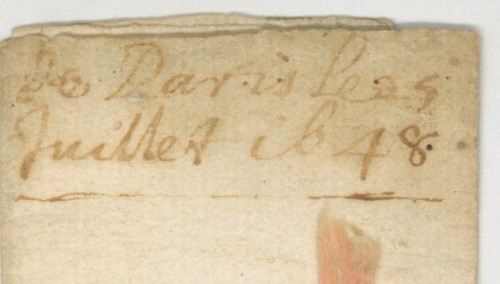 De Paris le 25
Juillet 1648